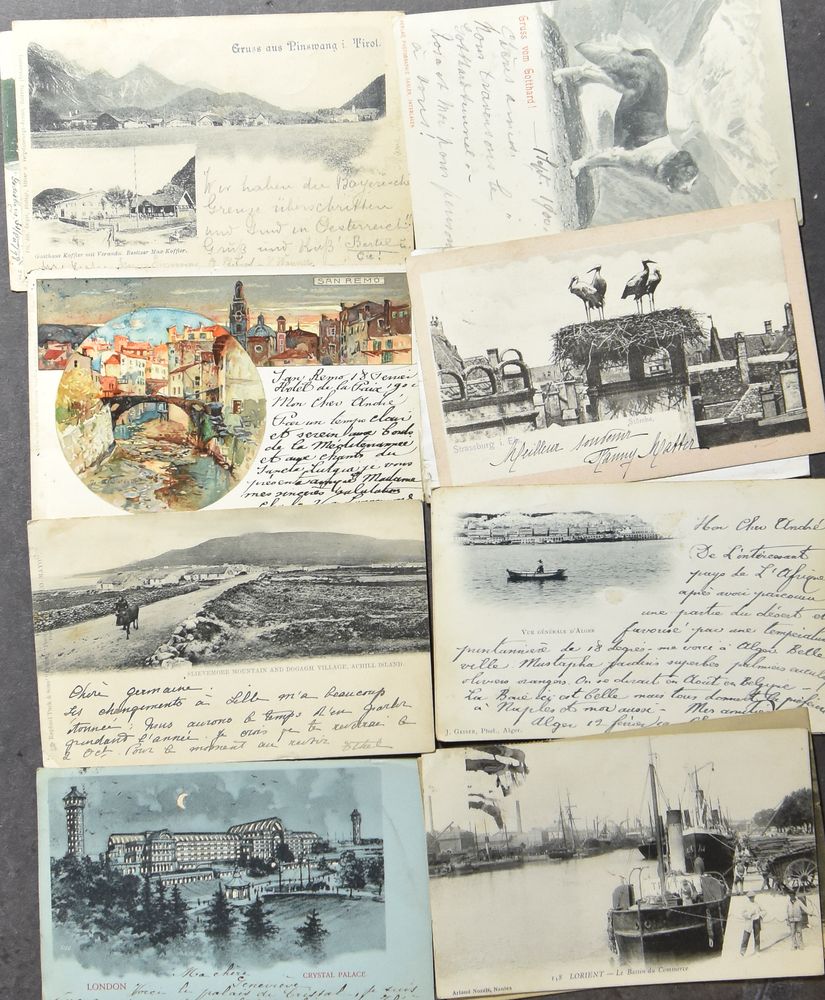 Gruss aus Pinswang i. Tirol.
Gasthaus Koffler mit Veranda. Besitzer Max Koffler.
Wir haben die Bayerische
Grenze überschritten
und sind in Oesterreich!!
Gruß und Kuß! Bertel
Gruss vom Gotthard!
Chers amis.
Nous traversons le
Gotthardtunnel
à vous!
SAN REMO
San Remo 18 Fevrier
Hotel de la Paix 190
Mon Cher André
Par un temps clair
et serein aux bords
de la Méditerranée
et aux chants du
je vous
présente Madame
mes sincères salutation
Strassburg i. Els.
Störche.
Meilleur souvenir
Fanny Matter
SLIEVEMORE MOUNTAIN AND DOGAGH VILLAGE, ACHILL ISLAND.
Chère Germaine:
Les changements à Lille m'a beaucoup
étonnée! Nous aurons le temps d'en parler
pendant l'année. Je crois je te reverrai le
2 Oct. Pour le moment au revoir Ethel
VUE GÉNÉRALE D'ALGER
J. GEISER, Phot., Alger.
Mon Cher André
De L'intéressant
pays de L'Afrique
après avoir parcouru
une partie du désert et
favorisé par une température
printannière de 18 degrés - me voici à Alger Belle
ville Mustapha jardins superbes palmiers
oliviers orangers. On se dirait en Août en Belgique -
La Baie ici est belle mais tous donnent la préf
à Naples et moi aussi - Mes amitiés
Alger 12 février
LONDON
CRYSTAL PALACE
Ma chère
Geneviève
Voici le palais de Cristal, je suis
148 LORIENT — Le Bassin du Commerce
Artaud Nozais, Nantes